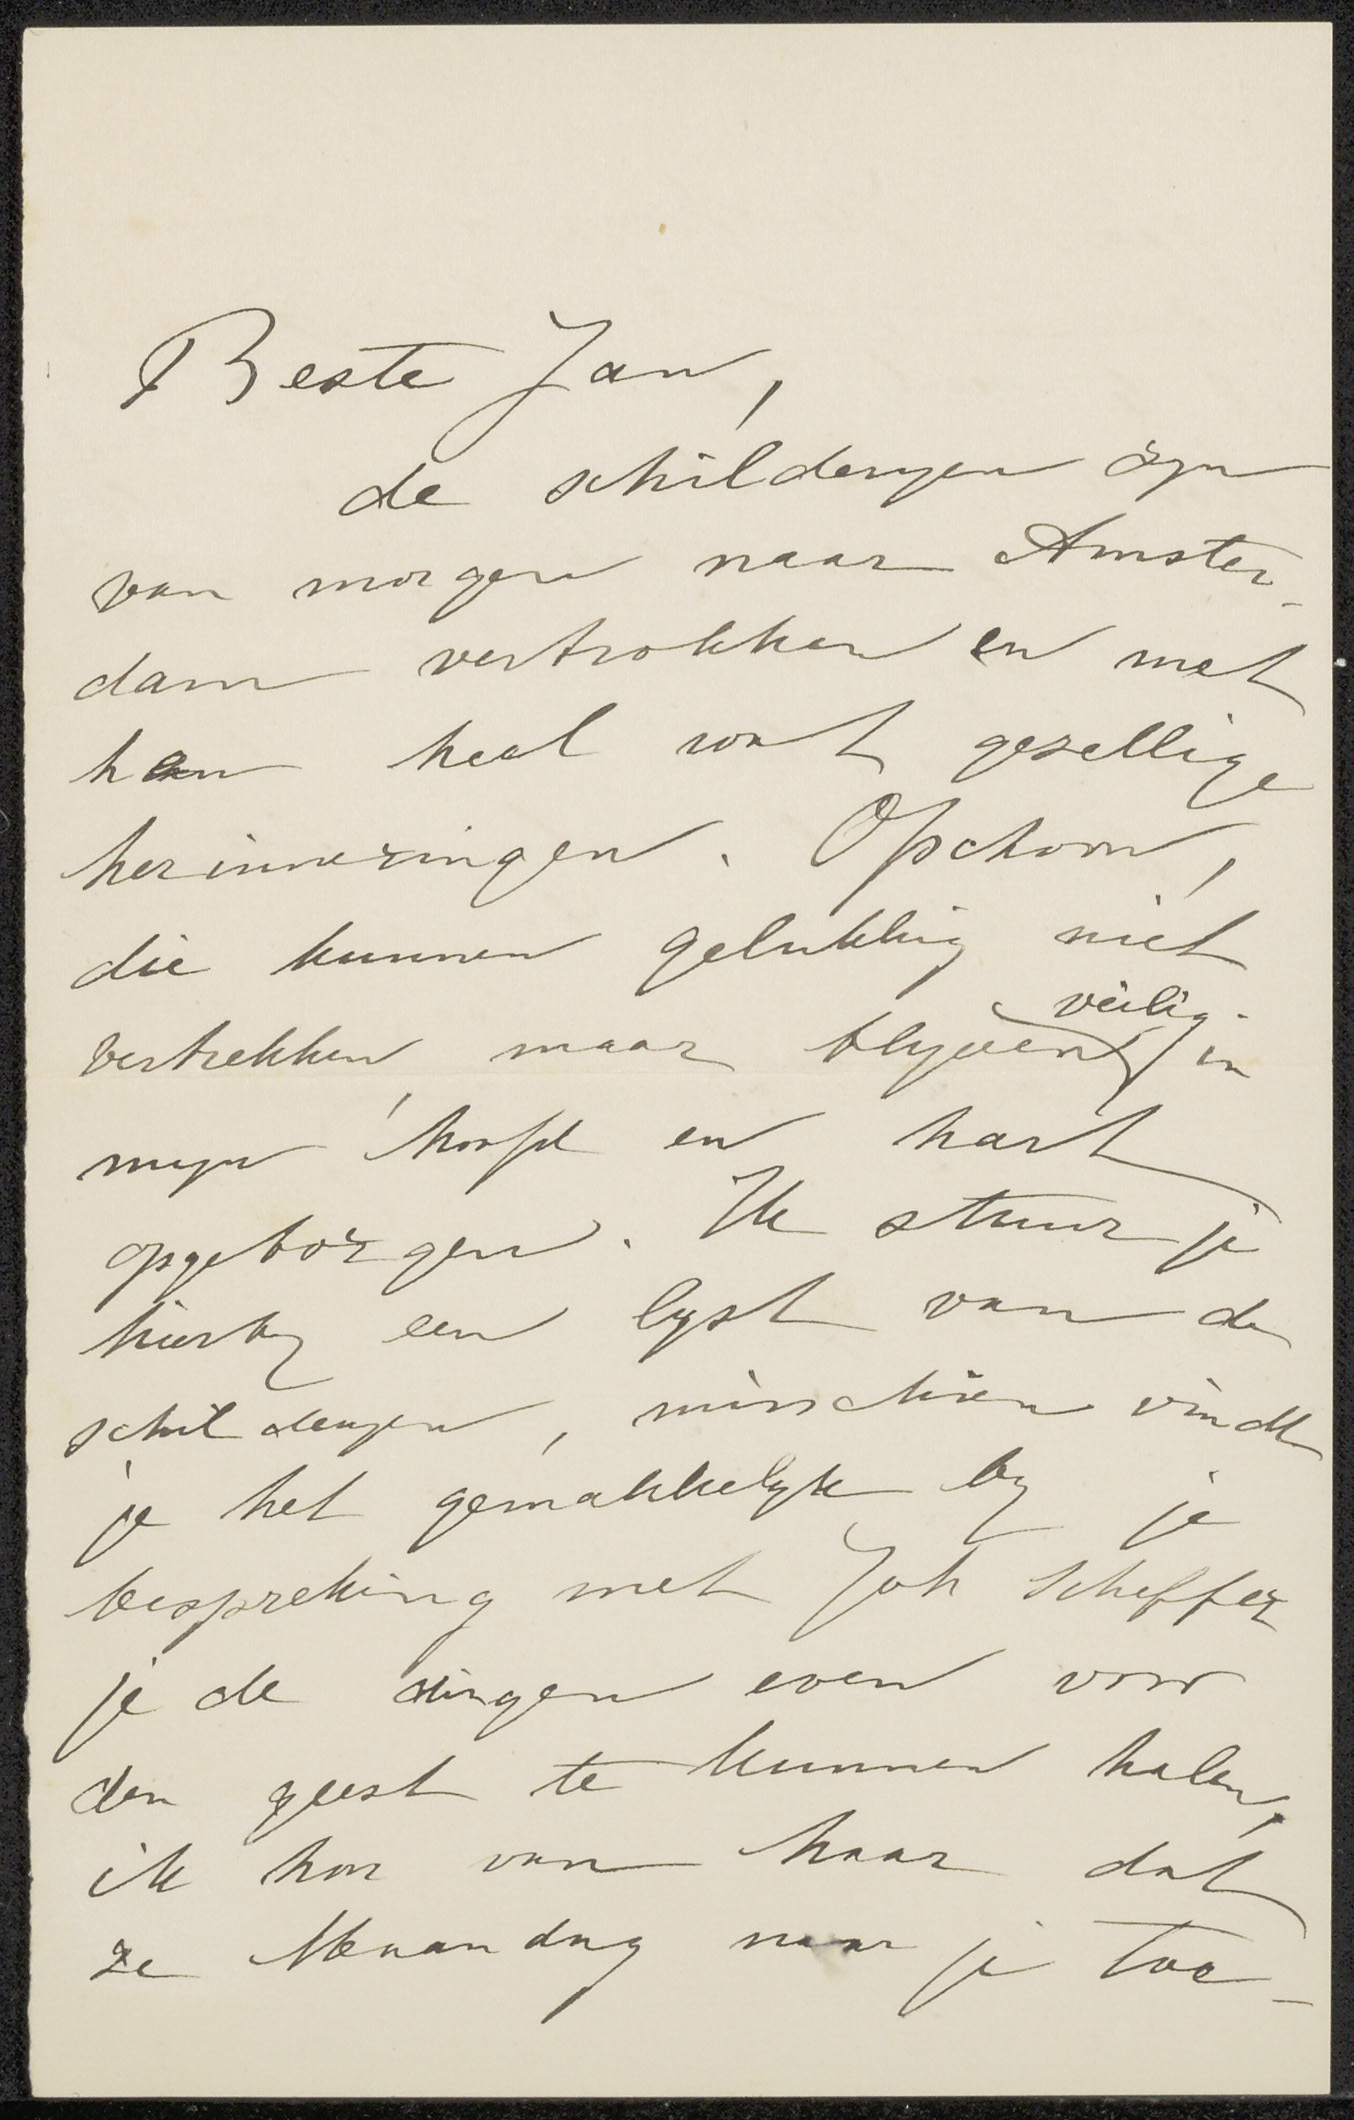 Beste Jan,
de schilderyen zyn
van morgen naar Amster-
dam vertrokken en met
hen heel wat gezellige
herinneringen. Ofschoon,
die kunnen gelukkig niet
vertrekken maar blyven veilig in
myn hoofd en hart
opgeborgen. Ik stuur je
hierby een lyst van de
schilderyen, misschien vindt
je het gemakkelyk by je
bespreking met Joh Scheffer
je de dingen even voor
den geest te kunnen halen,
ik hoor van haar dat
ze Maandag naar je toe-